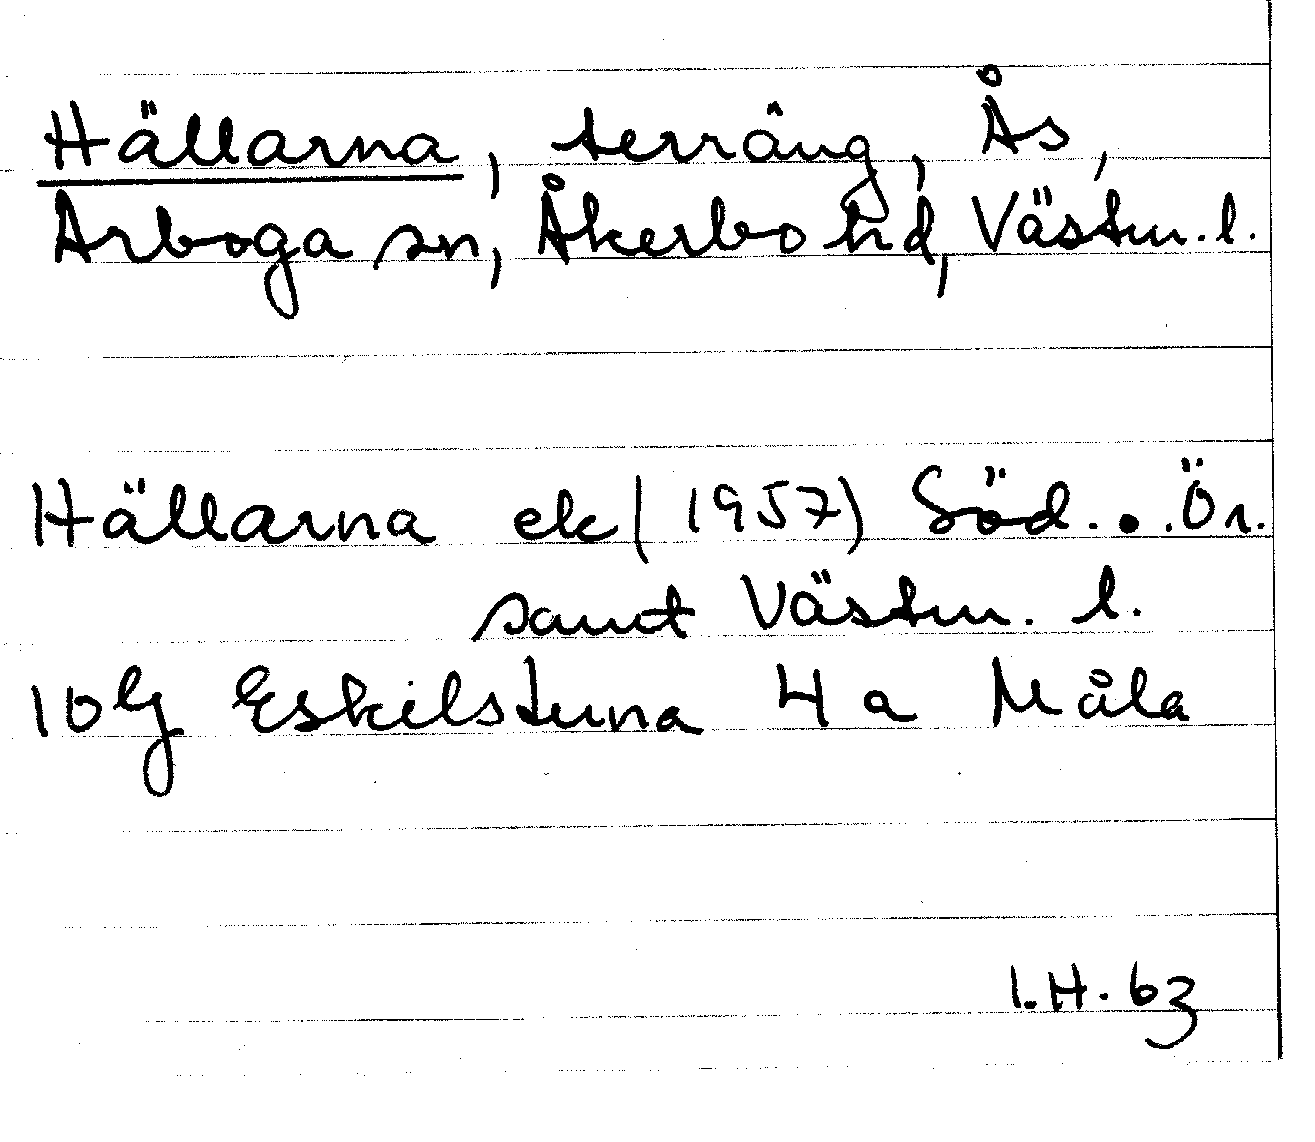 Hällarna, terräng, Ås,
Arboga sn, Åkerbo hd, Västm. l.
Hällarna ek (1957) Söd. . . Ör.
samt Västm. l.
10G Eskilstuna 4 a Måla
I.H. 63